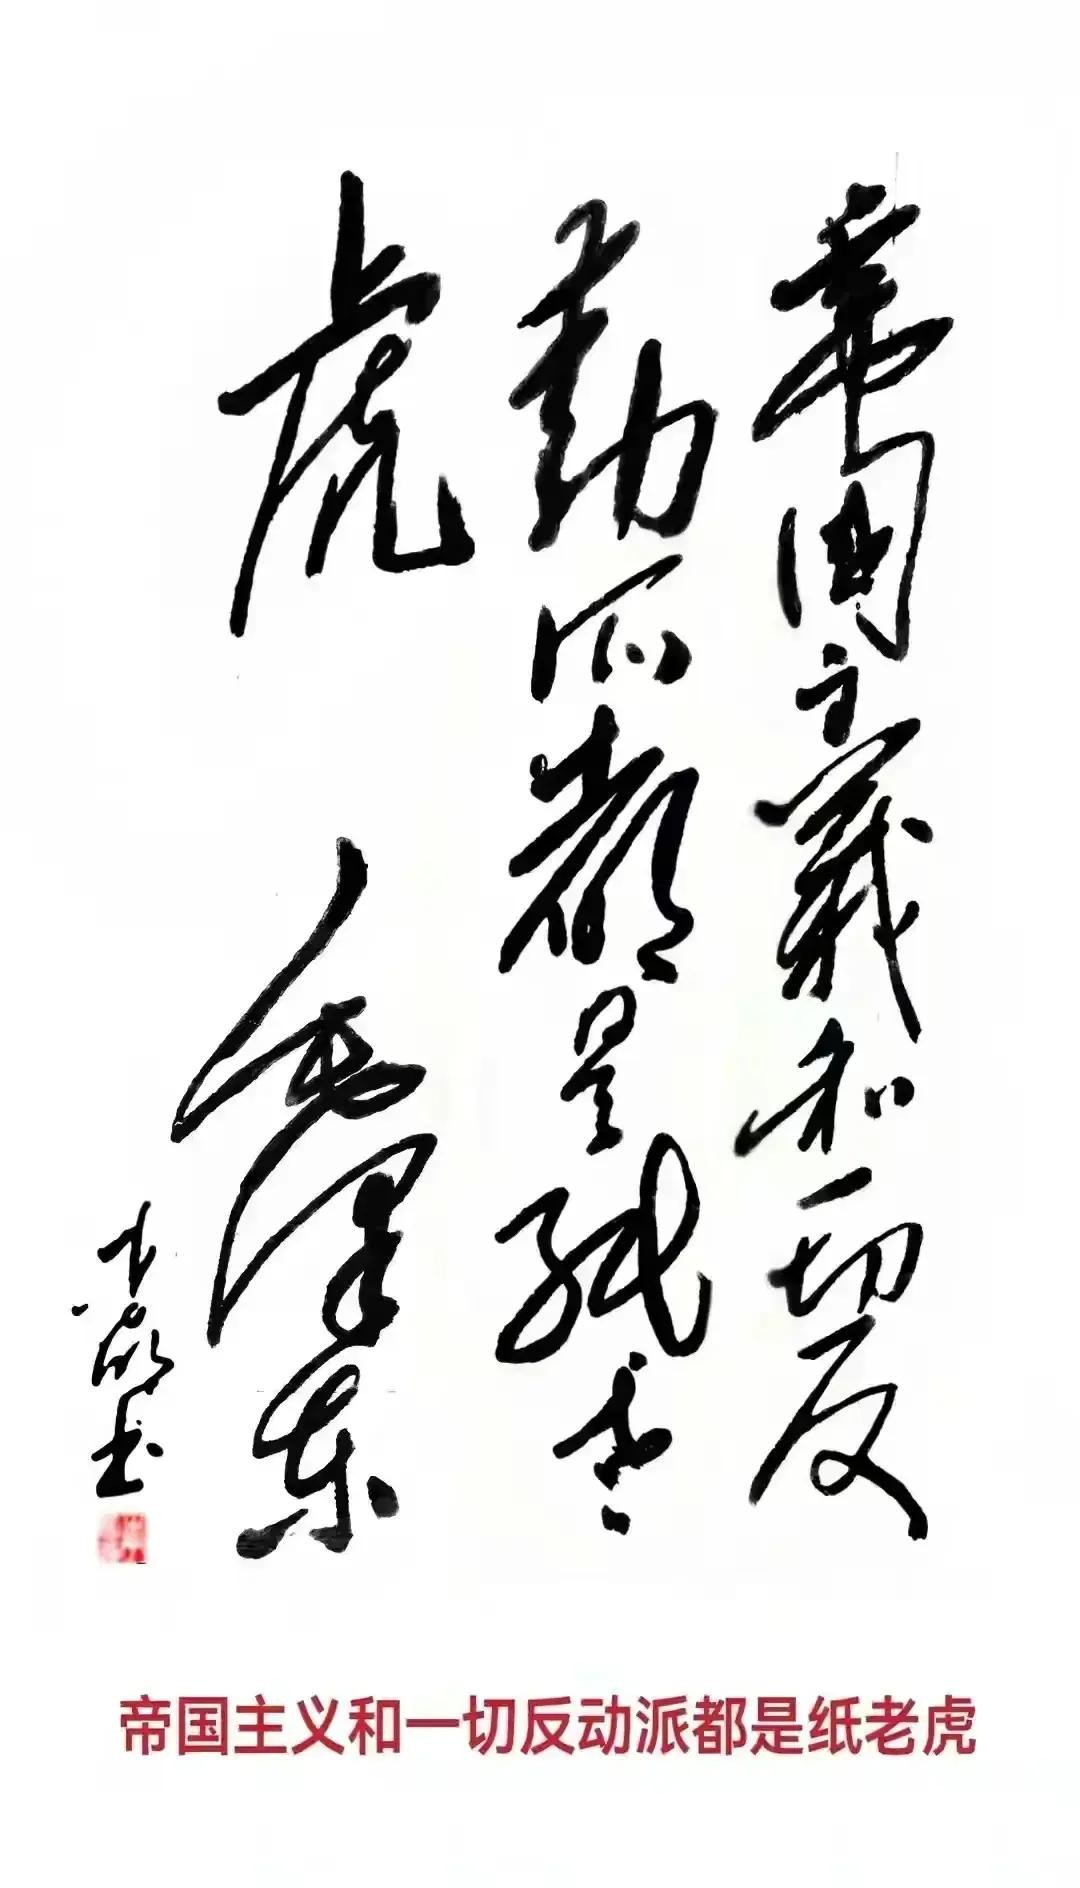 帝国主義和一切反
動派都是紙老
虎
毛澤东
书
帝国主义和一切反动派都是纸老虎